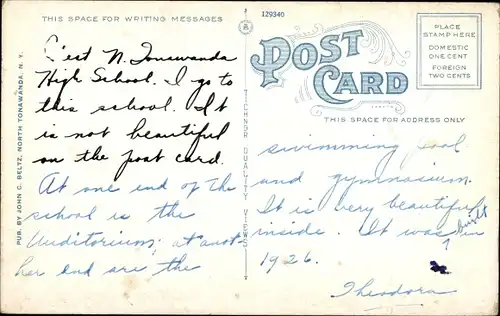 THIS SPACE FOR WRITING MESSAGES
129340
POST CARD
PLACE
STAMP HERE
DOMESTIC
ONE CENT
FOREIGN
TWO CENTS
THIS SPACE FOR ADDRESS ONLY
PUB. BY JOHN C. BELTZ, NORTH TONAWANDA, N. Y.
TICHNOR QUALITY VIEWS
C'est N. Tonawanda
High School. I go to
this school. It
is not beautiful
on the post card.
At one end of the
school is the
Auditorium; at anot-
her end are the
swimming pool
and gymnasium.
It is very beautiful
inside. It was built in
1926.
Theodora